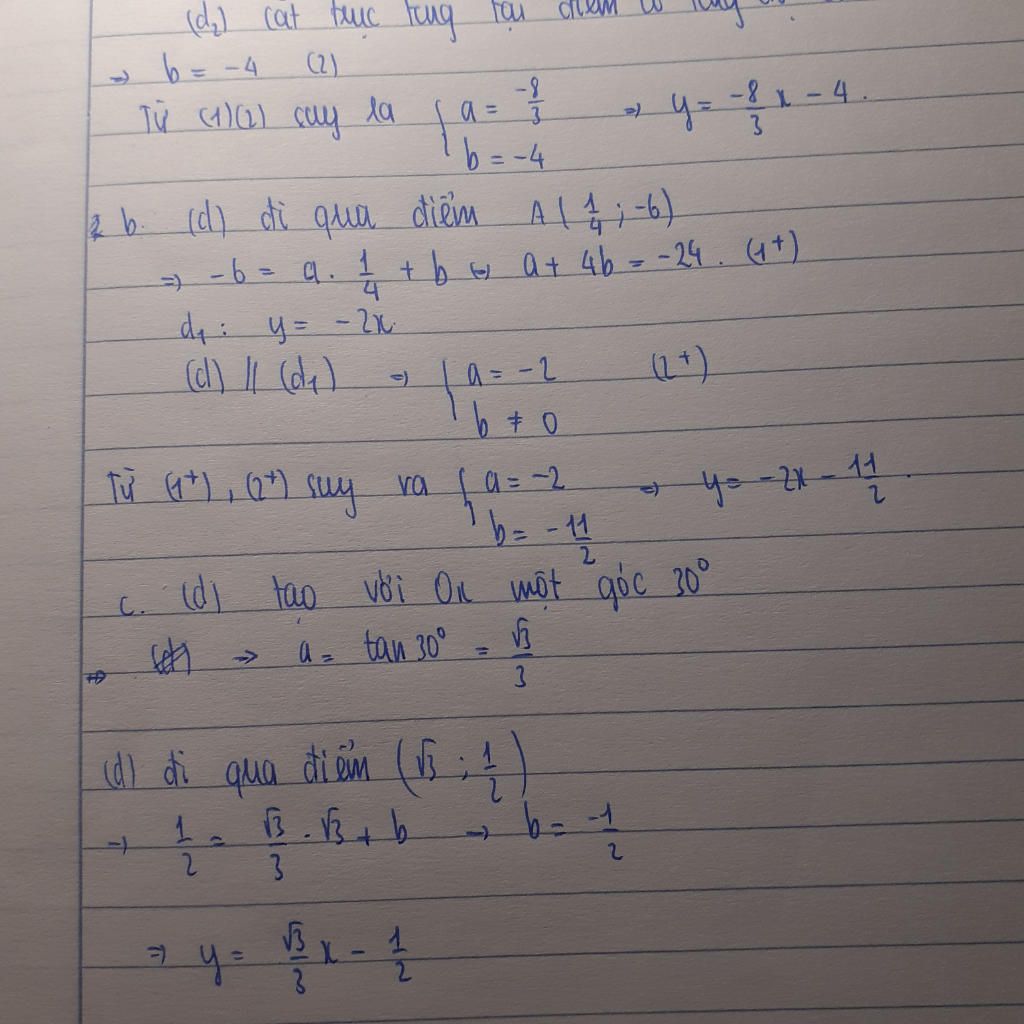 (d₂) cắt trục tung tại điểm có tung
⇒ b = -4 (2)
Từ (1)(2) suy ra { a = -8/3 ⇒ y = -8/3 x - 4.
b = -4
b. (d) đi qua điểm A(1/4; -6)
⇒ -6 = a. 1/4 + b ⇔ a + 4b = -24. (1⁺)
d₁: y = -2x.
(d) // (d₁) ⇒ { a = -2 (2⁺)
b ≠ 0
Từ (1⁺), (2⁺) suy ra { a = -2 ⇒ y = -2x - 11/2.
b = -11/2
c. (d) tạo với Ox một góc 30°
⇒ ⇒ a = tan 30° = √3/3
(d) đi qua điểm (√3; 1/2)
→ 1/2 = √3/3 . √3 + b → b = -1/2
⇒ y = √3/3 x - 1/2